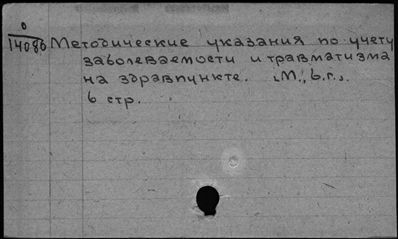 0
14086 Методические указания по учету
заболеваемости и травматизма
на здравпункте. [М., б.г.].
6 стр.